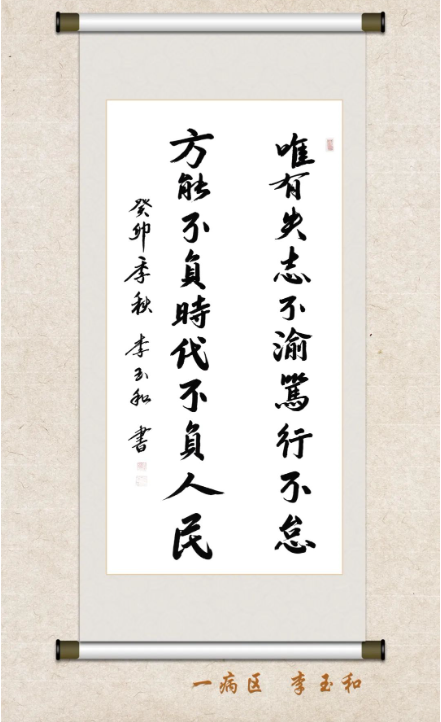 唯有矢志不渝篤行不怠
方能不負時代不負人民
癸卯季秋 李玉和 書
一病区 李玉和